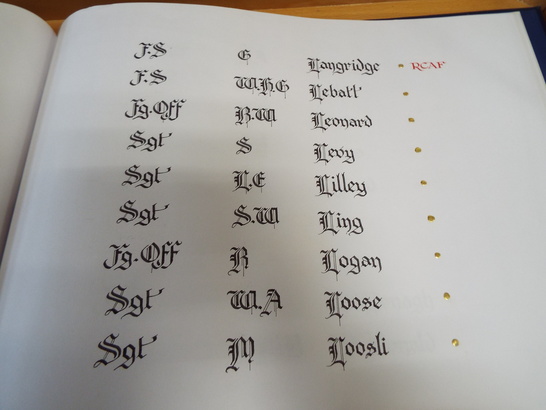 F.S G Langridge RCAF
F.S W.H.G Lebatt'
Fg.Off R.W Leonard
Sgt' S Levy
Sgt' L.E Lilley
Sgt' S.W Ling
Fg.Off R Logan
Sgt' W.A Loose
Sgt' M Loosli